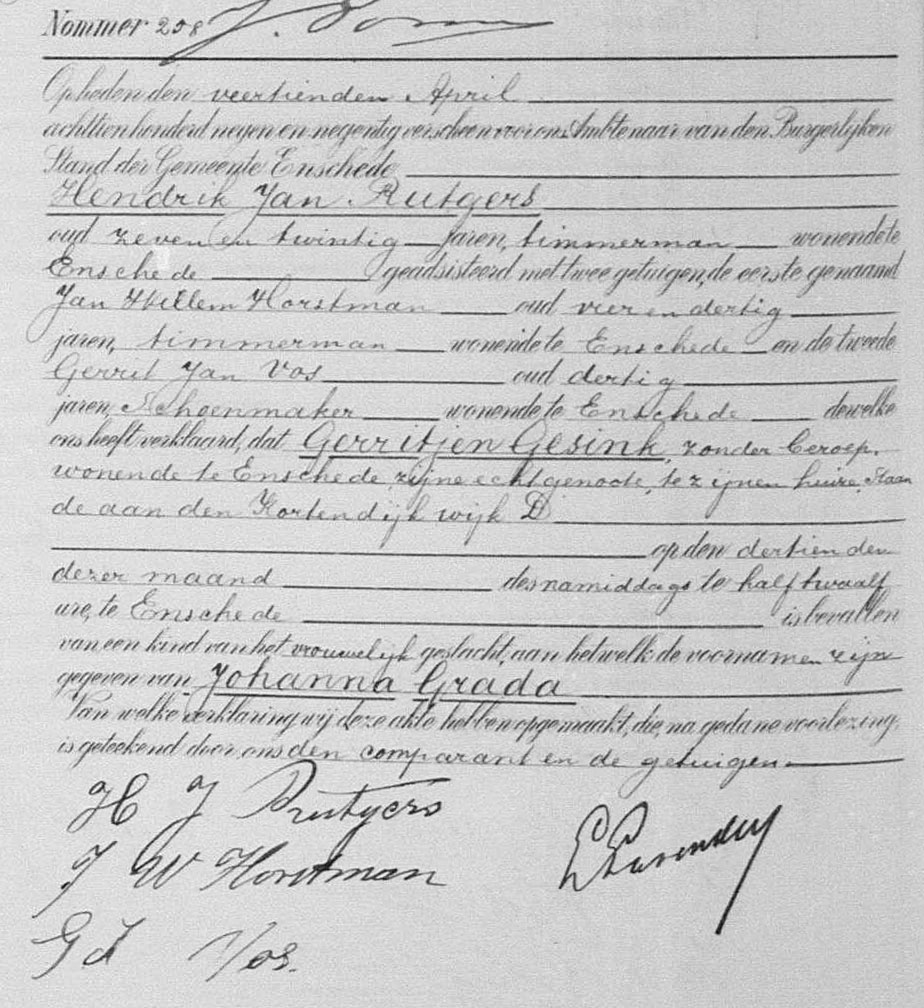 Nommer 258
Opheden den veertienden April
achttienhonderd negen en negentig verscheen voor ons Ambtenaar van den Burgerlijken
Stand der Gemeente Enschede
Hendrik Jan Rutgers
oud zeven en twintig jaren, timmerman wonende te
Enschede geadsisteerd met twee getuigen, de eerste genaamd
Jan Willem Horstman oud vier en dertig
jaren, timmerman wonende te Enschede en de tweede
Gerrit Jan Vos oud dertig
jaren, Schoenmaker wonende te Enschede dewelke
ons heeft verklaard, dat Gerritjen Gesink, zonder beroep,
wonende te Enschede, zijne echtgenoote, te zijnen huize, staan
de aan den Kortendijk wijk D
op den dertienden
dezer maand des namiddags te half twaalf
ure, te Enschede is bevallen
van een kind van het vrouwelijk geslacht, aan hetwelk de voornamen zijn
gegeven van Johanna Grada
Van welke verklaring wij deze akte hebben opgemaakt, die, na gedane voorlezing,
is geteekend door ons den comparant en de getuigen.
H J Rutgers
J W Horstman
G J Vos.